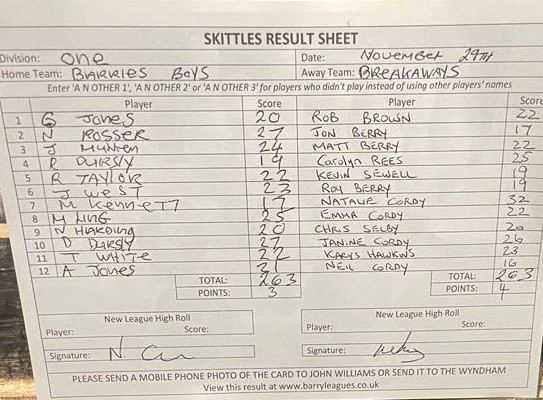 SKITTLES RESULT SHEET
Division: One Date: November 29TH
Home Team: BARRIES BOYS Away Team: BREAKAWAYS
Enter 'A N OTHER 1', 'A N OTHER 2' or 'A N OTHER 3' for players who didn't play instead of using other players' names
Player Score Player Score
1 G Jones 20 ROB BROWN 22
2 N ROSSER 27 JON BERRY 17
3 J 24 MATT BERRY 22
4 R DURSLY 19 Carolyn REES 25
5 R TAYLOR 22 KEVIN SEWELL 19
6 J West 23 ROY BERRY 19
7 M Kennett 17 NATALIE CORDY 32
8 M LING 25 EMMA CORDY 22
9 N HARDING 20 CHRIS SELBY 20
10 D DURSLY 27 JANINE CORDY 26
11 T WHITE 22 KARYS HAWKINS 23
12 A Jones NEIL CORDY 16
TOTAL: 263 TOTAL: 263
POINTS: 3 POINTS: 4
New League High Roll New League High Roll
Player: Score: Player: Score:
Signature: Signature:
PLEASE SEND A MOBILE PHONE PHOTO OF THE CARD TO JOHN WILLIAMS OR SEND IT TO THE WYNDHAM
View this result at www.barryleagues.co.uk